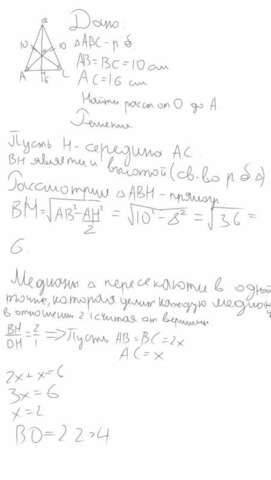 В
Дано:
10
10
△ABC - р б
AB = BC = 10 см
A
C
H
6
AC = 16 см
Найти расст от O до A
Решение
Пусть H - середина AC.
BH является высотой (св-во р б △)
Рассмотрим △ABH - прямоуг
BM = √(AB² - AH²/2) = √(10² - 8²) = √36 =
6
Медианы △ пересекаются в одной
точке, которая делит каждую медиану
в отношении 2 1 считая от вершины
BH/OH = 2/1 ⟹ Пусть AB = BC = 2x
AC = x
2x + x = 6
3x = 6
x = 2
BO = 2 2 = 4